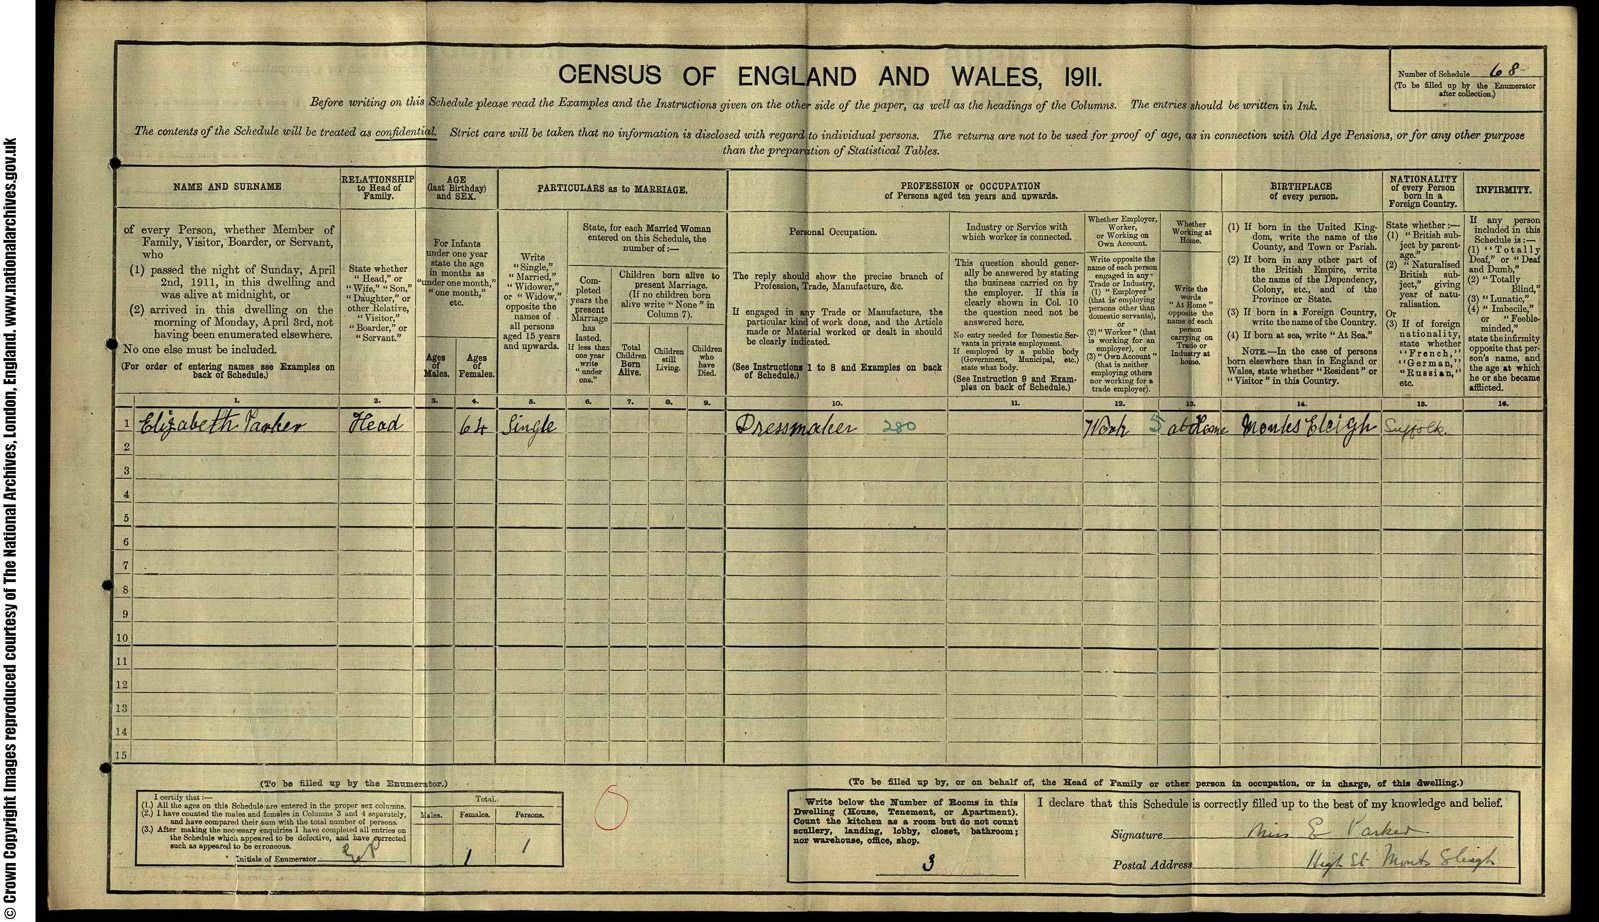 © Crown Copyright Images reproduced courtesy of The National Archives, London, England. www.nationalarchives.gov.uk
CENSUS OF ENGLAND AND WALES, 1911.
Number of Schedule 68
(To be filled up by the Enumerator
after collection.)
Before writing on this Schedule please read the Examples and the Instructions given on the other side of the paper, as well as the headings of the Columns. The entries should be written in Ink.
The contents of the Schedule will be treated as confidential. Strict care will be taken that no information is disclosed with regard to individual persons. The returns are not to be used for proof of age, as in connection with Old Age Pensions, or for any other purpose
than the preparation of Statistical Tables.
NAME AND SURNAME
of every Person, whether Member of
Family, Visitor, Boarder, or Servant,
who
(1) passed the night of Sunday, April
2nd, 1911, in this dwelling and
was alive at midnight, or
(2) arrived in this dwelling on the
morning of Monday, April 3rd, not
having been enumerated elsewhere.
No one else must be included.
(For order of entering names see Examples on
back of Schedule.)
RELATIONSHIP
to Head of
Family.
State whether
"Head," or
"Wife," "Son,"
"Daughter," or
other Relative,
"Visitor,"
"Boarder," or
"Servant."
AGE
(last Birthday)
and SEX.
For Infants
under one year
state the age
in months as
"under one month,"
"one month,"
etc.
Ages
of
Males.
Ages
of
Females.
PARTICULARS as to MARRIAGE.
Write
"Single,"
"Married,"
"Widower,"
or "Widow,"
opposite the
names of
all persons
aged 15 years
and upwards.
State, for each Married Woman
entered on this Schedule, the
number of:—
Com-
pleted
years the
present
Marriage
has
lasted.
If less than
one year
write
"under
one."
Children born alive to
present Marriage.
(If no children born
alive write "None" in
Column 7).
Total
Children
Born
Alive.
Children
still
Living.
Children
who
have
Died.
PROFESSION or OCCUPATION
of Persons aged ten years and upwards.
Personal Occupation.
The reply should show the precise branch of
Profession, Trade, Manufacture, &c.
If engaged in any Trade or Manufacture, the
particular kind of work done, and the Article
made or Material worked or dealt in should
be clearly indicated.
(See Instructions 1 to 8 and Examples on back
of Schedule.)
Industry or Service with
which worker is connected.
This question should gener-
ally be answered by stating
the business carried on by
the employer. If this is
clearly shown in Col. 10
the question need not be
answered here.
No entry needed for Domestic Ser-
vants in private employment.
If employed by a public body
(Government, Municipal, etc.)
state what body.
(See Instruction 9 and Exam-
ples on back of Schedule.)
Whether Employer,
Worker,
or Working on
Own Account.
Write opposite the
name of each person
engaged in any
Trade or Industry,
(1) "Employer"
(that is employing
persons other than
domestic servants),
or
(2) "Worker" (that
is working for an
employer), or
(3) "Own Account"
(that is neither
employing others
nor working for a
trade employer).
Whether
Working at
Home.
Write the
words
"At Home"
opposite the
name of each
person
carrying on
Trade or
Industry at
home.
BIRTHPLACE
of every person.
(1) If born in the United King-
dom, write the name of the
County, and Town or Parish.
(2) If born in any other part of
the British Empire, write
the name of the Dependency,
Colony, etc., and of the
Province or State.
(3) If born in a Foreign Country,
write the name of the Country.
(4) If born at sea, write "At Sea."
NOTE.—In the case of persons
born elsewhere than in England or
Wales, state whether "Resident" or
"Visitor" in this Country.
NATIONALITY
of every Person
born in a
Foreign Country.
State whether:—
(1) "British sub-
ject by parent-
age."
(2) "Naturalised
British sub-
ject," giving
year of natu-
ralisation.
Or
(3) If of foreign
nationality,
state whether
"French,"
"German,"
"Russian,"
etc.
INFIRMITY.
If any person
included in this
Schedule is:—
(1) "Totally
Deaf," or "Deaf
and Dumb,"
(2) "Totally
Blind,"
(3) "Lunatic,"
(4) "Imbecile,"
or "Feeble-
minded,"
state the infirmity
opposite that per-
son's name, and
the age at which
he or she became
afflicted.
1. 2. 3. 4. 5. 6. 7. 8. 9. 10. 11. 12. 13. 14. 15. 16.
1 Elizabeth Parker Head 64 Single Dressmaker 280 Work 5 at Home Monks Eleigh Suffolk.
2
3
4
5
6
7
8
9
10
11
12
13
14
15
(To be filled up by the Enumerator.)
I certify that:—
(1.) All the ages on this Schedule are entered in the proper sex columns.
(2.) I have counted the males and females in Columns 3 and 4 separately,
and have compared their sum with the total number of persons.
(3.) After making the necessary enquiries I have completed all entries on
the Schedule which appeared to be defective, and have corrected
such as appeared to be erroneous.
Initials of Enumerator
Total.
Males. Females. Persons.
1 1
(To be filled up by, or on behalf of, the Head of Family or other person in occupation, or in charge, of this dwelling.)
Write below the Number of Rooms in this
Dwelling (House, Tenement, or Apartment).
Count the kitchen as a room but do not count
scullery, landing, lobby, closet, bathroom;
nor warehouse, office, shop.
3
I declare that this Schedule is correctly filled up to the best of my knowledge and belief.
Signature Miss E Parker
Postal Address High St Monks Eleigh